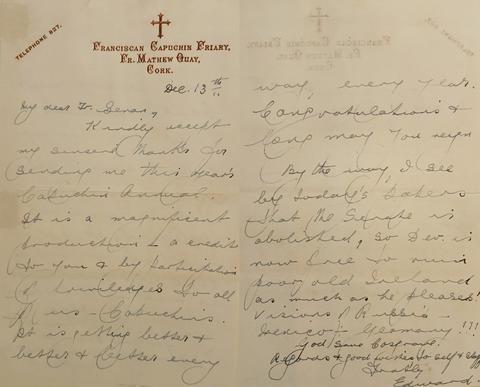 TELEPHONE 827.
FRANCISCAN CAPUCHIN FRIARY,
FR. MATHEW QUAY,
CORK.
Dec. 13th
My dear Fr. Senan,
Kindly accept
my sincere thanks for
sending me this year's
Capuchin Annual.
It is a magnificent
production & a credit
to you & by participation
of privileges to all
of us - Capuchins.
It is getting better &
better & better every
way, every year.
Congratulations &
long may you reign
By the way, I see
by today's papers
that the Senate is
abolished, so Dev. is
now free to ruin
poor old Ireland
as much as he pleases!
Visions of Russia -
Mexico - Germany!!!
God save Cosgrave.
Regards & good wishes to self & staff
Edward